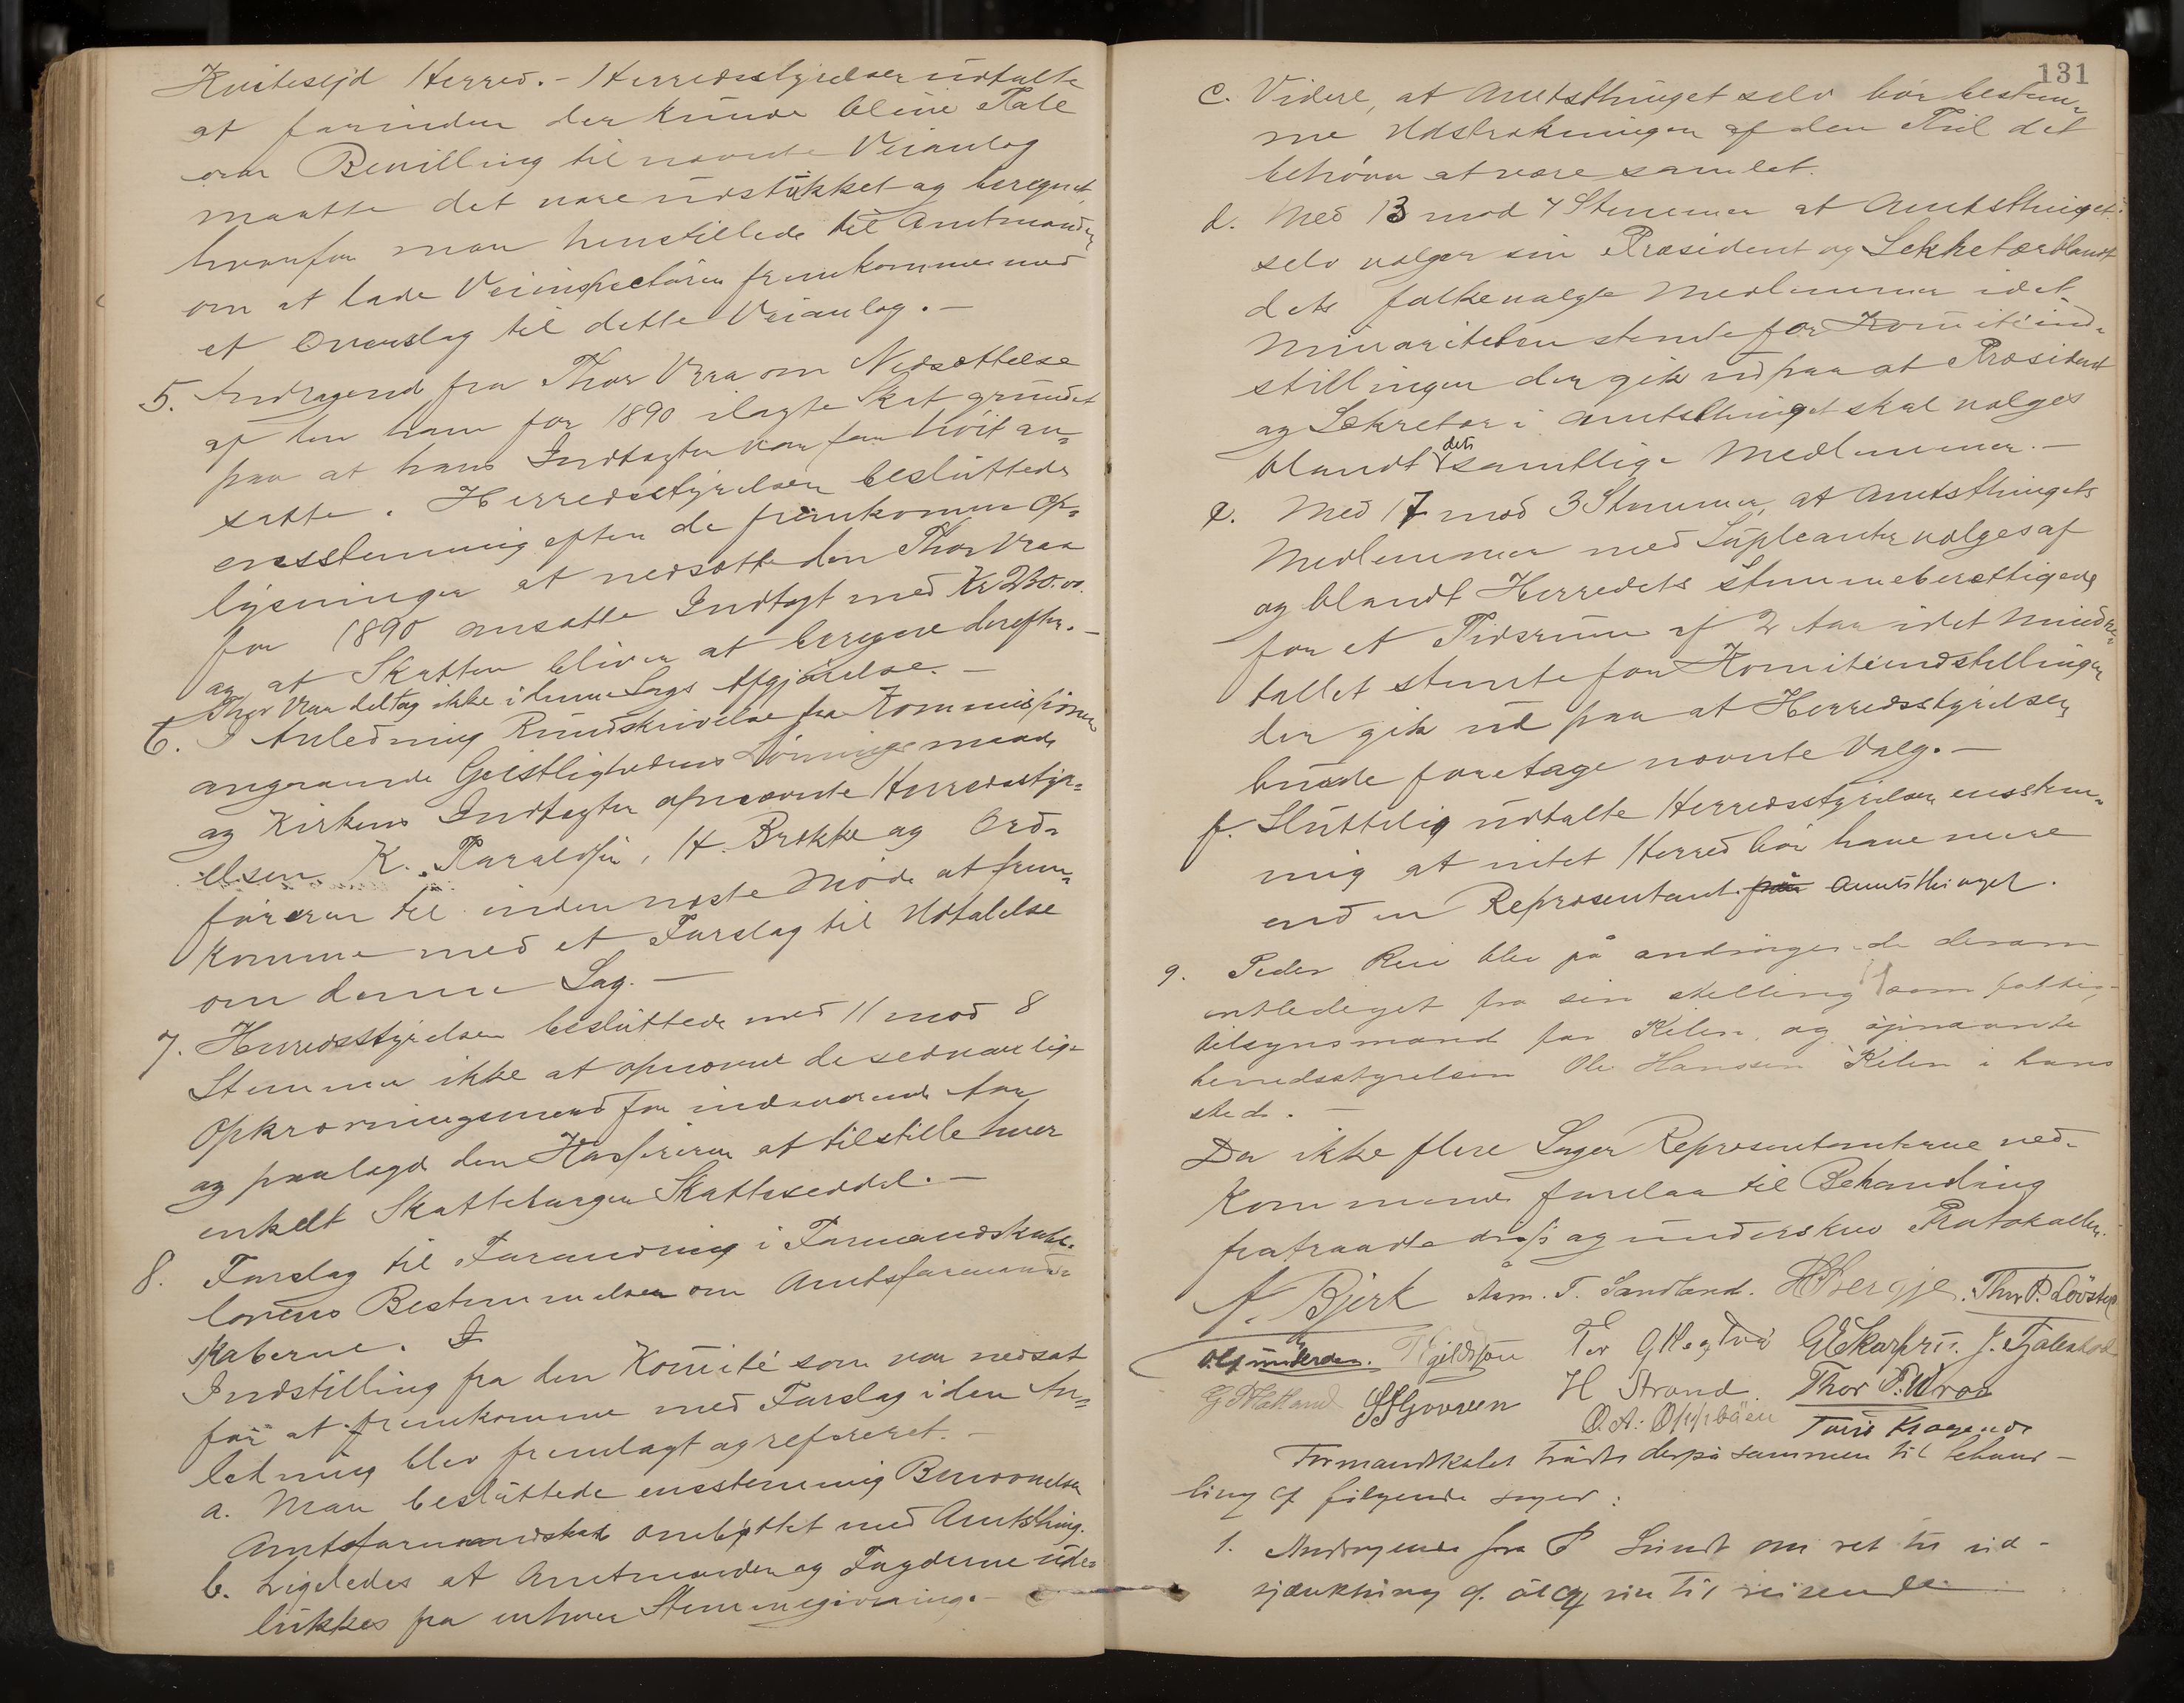 Kviteseid Herred. - Herredsstyrelsen udtalte
at forinden der kunde blive Tale
om Bevilling til nævnte Veianlæg
maatte det være udstukket og beregnet,
hvorfor man henstillede til Amtmanden
om at lade Veiinspectøren fremkomme med
et Overslag til dette Veianlæg. -
5. Andragend fra Thor Vraa om Nedsættelse
af den ham for 1890 ilagte Skat grundet
paa at hans Indtægter var for høit an=
satte. Herredsstyrelsen besluttede
enstemmig efter de fremkomne Op=
lysninger at nedsætte den Thor Vraa
for 1890 ansatte Indtægt med Kr 230.00.
og at Skatten bliver at beregne derefter. -
Thor Vraa deltog ikke i denne Sags Afgjørelse. -
6. I Anledning Rundskrivelse fra Kommissionen
angaaende Geistlighedens Lønningsmaade
og Kirkens Indtægter opnævnte Herredssty=
relsen K. Taraldsen, H. Brekke og Ord=
føreren til inden næste Møde at frem=
komme med et Forslag til Udtalelse
om denne Sag. -
7. Herredsstyrelsen besluttede med 11 mod 8
Stemmer ikke at opnævne de sedvanlige
Opkrævningsmænd for indeværende Aar
og paalagde den Kassereren at tilstille hver
enkelt Skatteborger Skattesedel. -
8. Forslag til Forandring i Formandskabs=
lovens Bestemmelser om Amtsformand=
skaberne.
Indstilling fra den Komité som var nedsat
for at fremkomme med Forslag i den An=
ledning blev fremlagt og refereret. -
a. Man besluttede enstemmig Benævnelsen
Amtsformandskab ombyttet med Amtsthing.
b. Ligeledes at Amtmanden og Fogderne ude=
lukkes fra enhver Stemmegivning. -
131
c. Videre, at Amtsthinget selv bør bestem=
me Udstrækningen af den Tid det
behøver at være samlet.
d. Med 13 mod 7 Stemmer at Amtsthinget
selv vælger sin Præsident og Sekretær blandt
dets folkevalgte Medlemmer idet
Minoriteten stemte for Komitéind=
stillingen der gik ud paa at Præsident
og Sekretær i Amtsthinget skal vælges
blandt dets samtlige Medlemmer. -
e. Med 17 mod 3 Stemmer, at Amtsthingets
Medlemmer med Supleanter vælges af
og blandt Herredets stemmeberettigede
for et Tidsrum af 2 Aar idet Mindre=
tallet stemte for Komitéindstillingen
der gik ud paa at Herredsstyrelsen
burde foretage nævnte Valg. -
f. Sluttelig udtalte Herredsstyrelsen enstem=
mig at intet Herred bør have mere
end en Repræsentant paa Amtsthinget.
9. Peder Rui blev på andragende derom
entlediget fra sin stilling som fattig-
tilsynsmand for Kilen, og opnævnte
herredsstyrelsen Ole Hanssen Kilen i hans
sted. -
Da ikke flere Sager Repræsentanterne ved=
kommende forelaa til Behandling
fratraadte disse og underskrev Protokollen.
N. Bjerk Asm. T. Sandland. H Bergje. Thor P. Løvste
H Strand. Thor P. Vraa
O. A. Opsbøen
Formandskabet trådte derpå sammen til behand-
ling af følgende sager:
1. Andragende fra P Sundt om ret til ud-
sjænkning af øl og vin til reisende